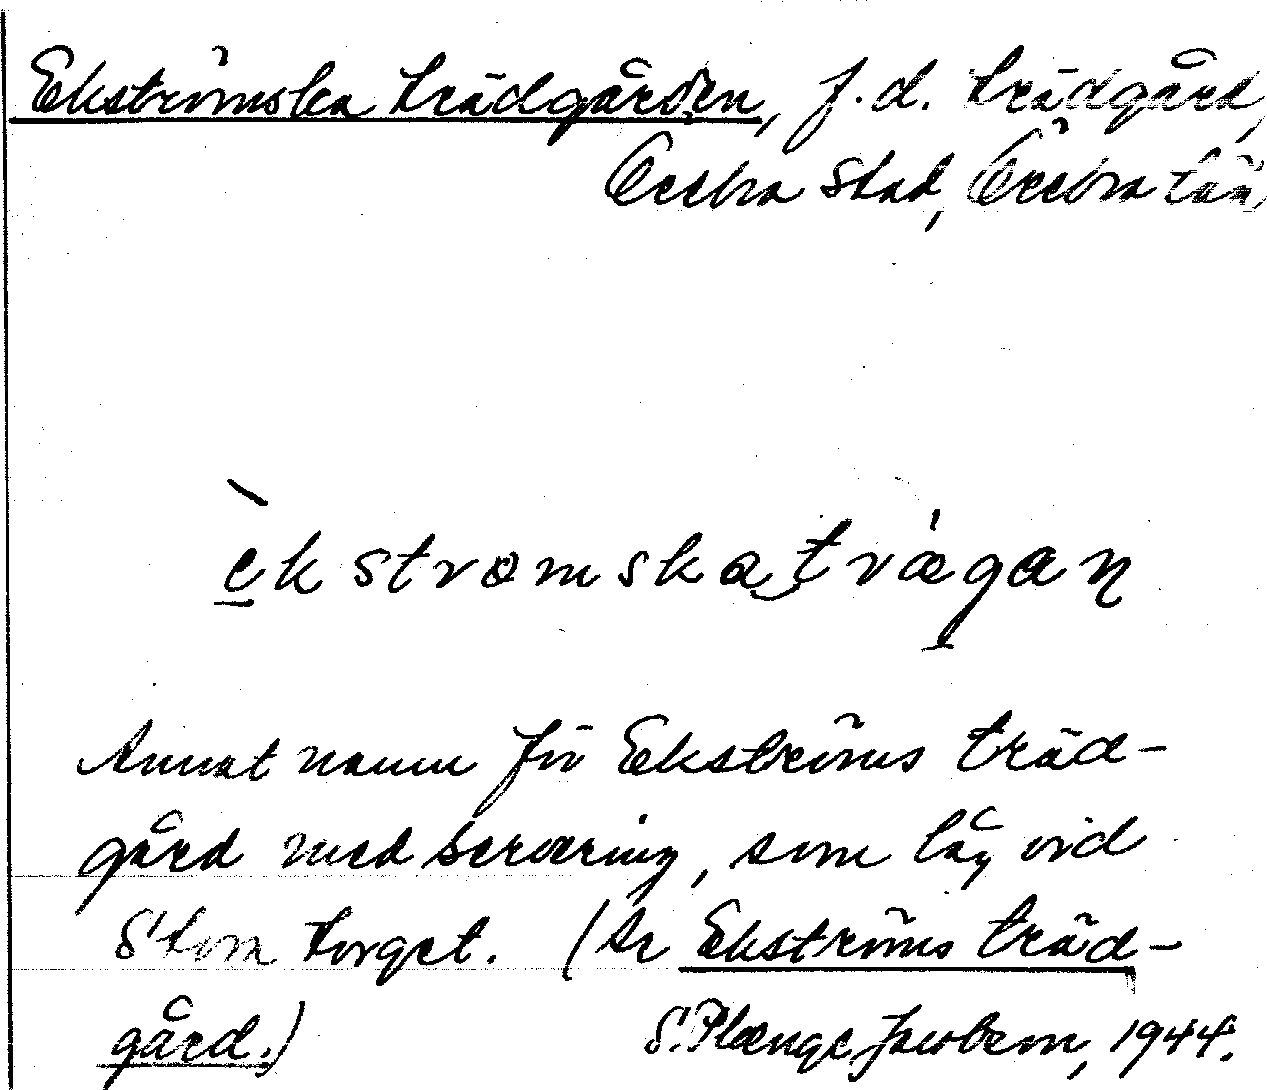 Ekströmska trädgården, f.d. trädgård,
Örebro stad, Örebro län,
èkstromska trägan
Annat namn för Ekströms träd-
gård med servering, som låg vid
Stora torget. (Se Ekströms träd-
gård.) S. Plænge Jacobson, 1944.